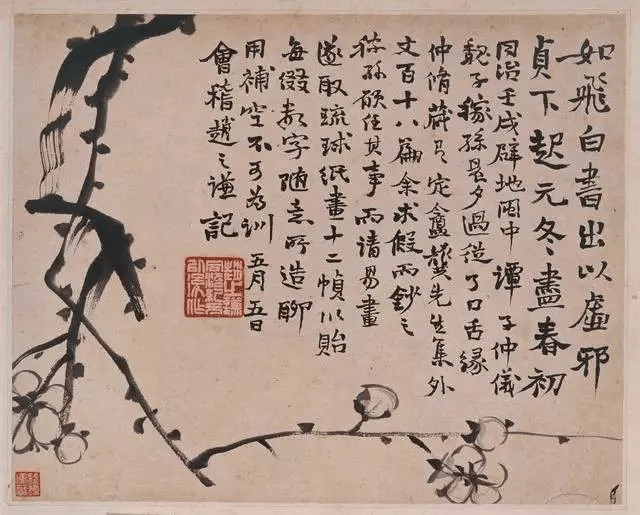 如飛白書出以虛邪
貞下起元冬盡春初
同治壬戌辟地閩中譚子仲儀
魏子稼孫晨夕過從了口舌緣
仲脩藏有定盦龔先生集外
文百十八篇余求假而鈔之
稼孫願任其事而請易畫
遂取琉球紙畫十二幀以貽
每綴數字隨意所造聊
用補空不可為訓 五月五日
會稽趙之謙記